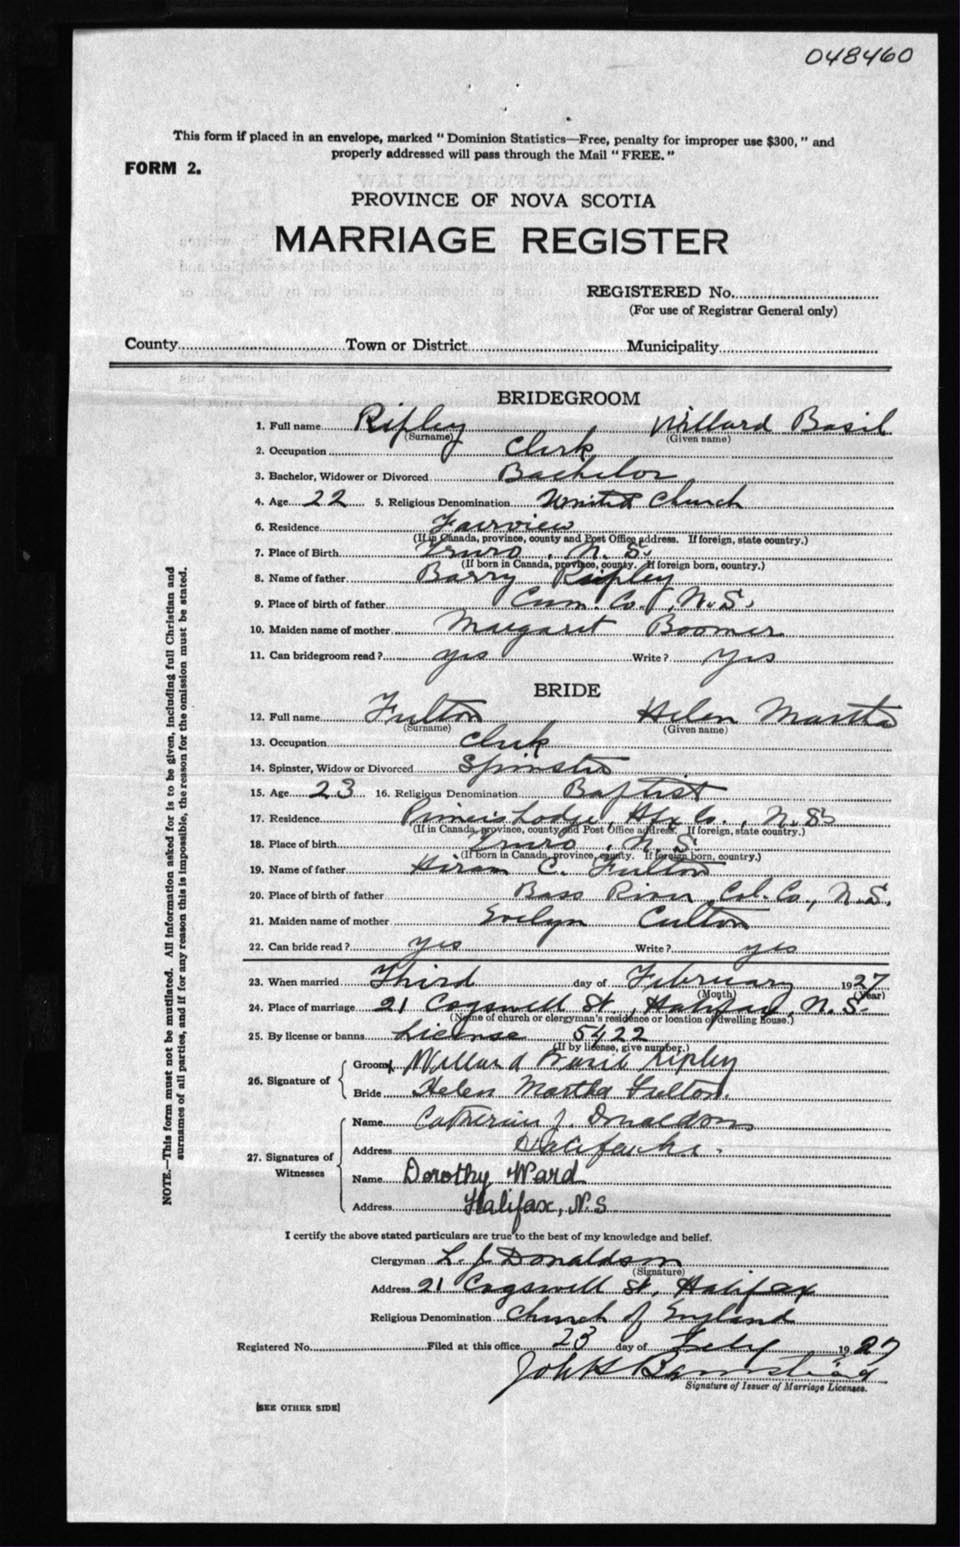 048460
This form if placed in an envelope, marked "Dominion Statistics—Free, penalty for improper use $300," and
properly addressed will pass through the Mail "FREE."
FORM 2.
PROVINCE OF NOVA SCOTIA
MARRIAGE REGISTER
REGISTERED No.
(For use of Registrar General only)
County Town or District Municipality
NOTE.—This form must not be mutilated. All information asked for is to be given, including full Christian and
surnames of all parties, and if for any reason this is impossible, the reason for the omission must be stated.
BRIDEGROOM
1. Full name Ripley Willard Basil
(Surname) (Given name)
2. Occupation Clerk
3. Bachelor, Widower or Divorced Bachelor
4. Age 22 5. Religious Denomination United Church
6. Residence Fairview
(If in Canada, province, county and Post Office address. If foreign, state country.)
7. Place of Birth Truro, N.S.
(If born in Canada, province, county. If foreign born, country.)
8. Name of father Barry Ripley
9. Place of birth of father Cum. Co., N.S.
10. Maiden name of mother Margaret Boomer
11. Can bridegroom read? yes Write? yes
BRIDE
12. Full name Fulton Helen Martha
(Surname) (Given name)
13. Occupation Clerk
14. Spinster, Widow or Divorced Spinster
15. Age 23 16. Religious Denomination Baptist
17. Residence Lodge, Hfx Co., N.S.
(If in Canada, province, county and Post Office address. If foreign, state country.)
18. Place of birth Truro, N.S.
(If born in Canada, province, county. If foreign born, country.)
19. Name of father Hiram C. Fulton
20. Place of birth of father Bass River, Col. Co., N.S.
21. Maiden name of mother Evelyn
22. Can bride read? yes Write? yes
23. When married Third day of February 1927
(Month) (Year)
24. Place of marriage 21 Cogswell St, Halifax, N.S.
(Name of church or clergyman's residence or location of dwelling house.)
25. By license or banns License 5422
(If by license, give number.)
26. Signature of
Groom Willard Basil Ripley
Bride Helen Martha Fulton.
27. Signatures of
Witnesses
Name Catherine J. Donaldson
Address Halifax
Name Dorothy Ward
Address Halifax, N.S
I certify the above stated particulars are true to the best of my knowledge and belief.
Clergyman L. J. Donaldson
(Signature)
Address 21 Cogswell St, Halifax
Religious Denomination Church of England
Registered No. Filed at this office 23 day of Feby 1927
John Barnstead
Signature of Issuer of Marriage Licenses.
[SEE OTHER SIDE]